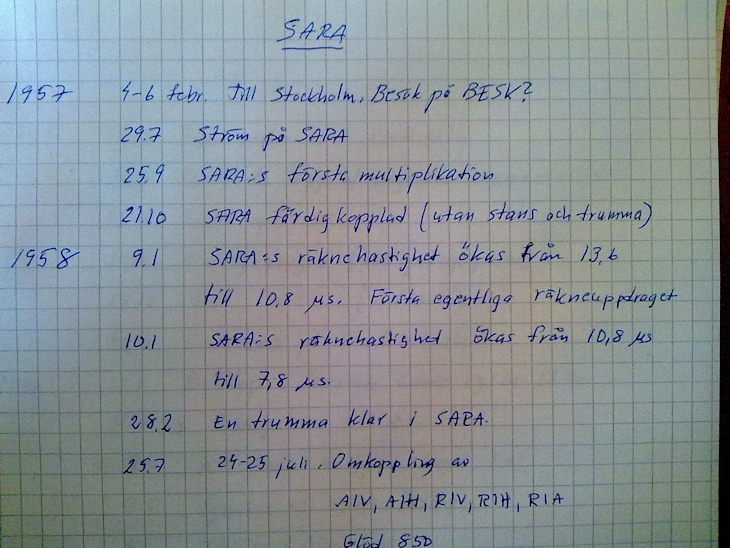 SARA
1957 4-6 febr. Till Stockholm, Besök på BESK?
29.7 Ström på SARA
25.9 SARA:s första multiplikation
21.10 SARA färdigkopplad (utan stans och trumma)
1958 9.1 SARA:s räknehastighet ökas från 13,6
till 10,8 µs. Första egentliga räkneuppdraget
10.1 SARA:s räknehastighet ökas från 10,8 µs
till 7,8 µs.
28.2 En trumma klar i SARA.
25.7 24-25 juli. Omkoppling av
AIV, AIH, RIV, RIH, RIA
850